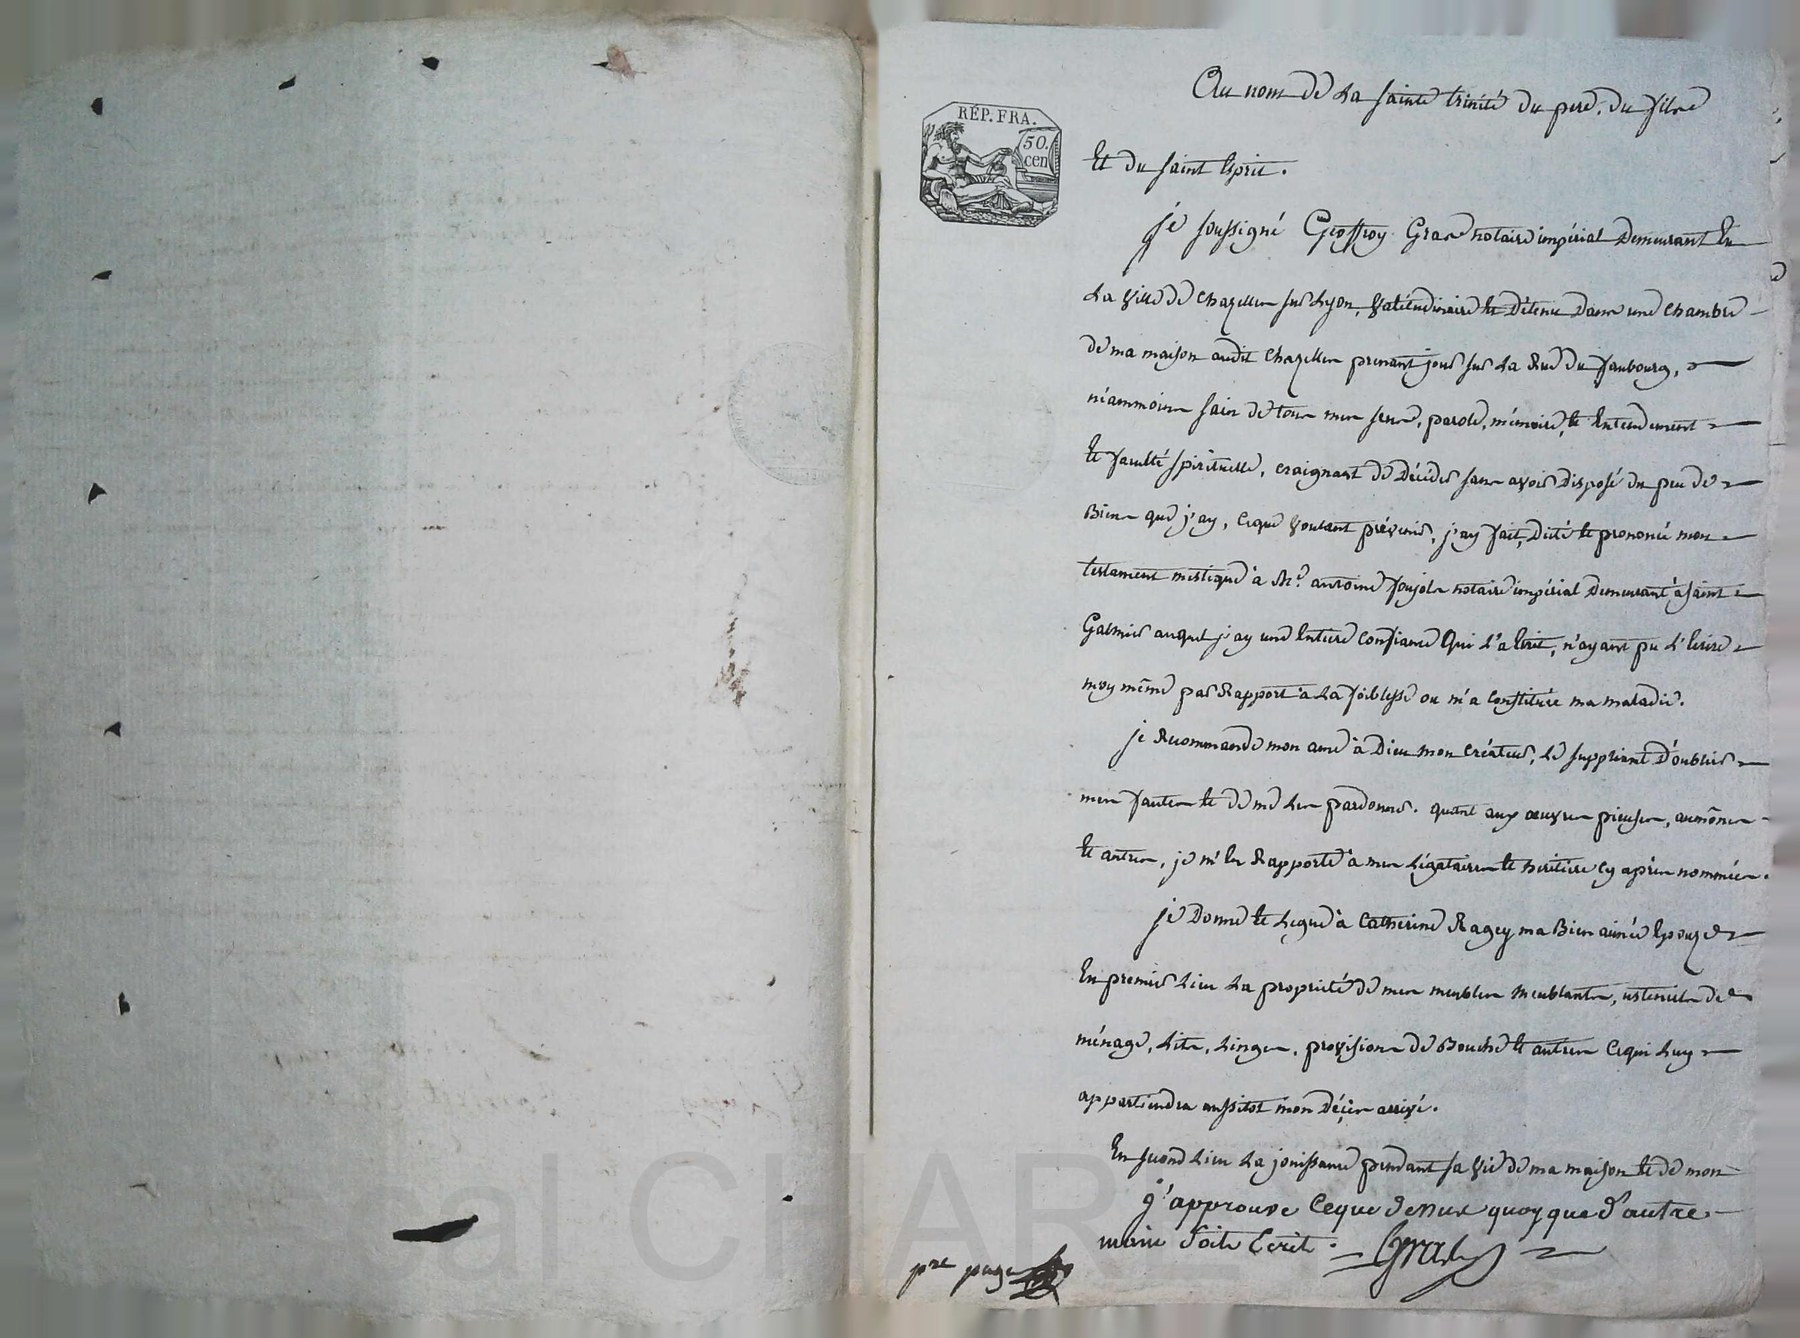 RÉP. FRA.
50.
cen
Au nom de La sainte trinité du pere, du fils
Et du saint Esprit.
je soussigné Geoffroy Gras notaire impérial demeurant En
La ville de chazelles sur Lyon, valétudinaire et détenu dans une chambre
de ma maison audit chazelles prenant jour sur La Rue du faubourg,
néammoins sain de tous mes sens, parole, mémoire, et Entendement
et faculté spirituelle, craignant de décéder sans avoir disposé du peu de
Biens que j'ay, Ceque voulant prévenir, j'ay fait, dicté et prononcé mon
testament mistique à Me. antoine notaire impérial demeurant à saint
Galmier auquel j'ay une Entiere confiance Qui L'a Ecrit, n'ayant pu L'Ecrire
moy même par Rapport à La foiblesse ou m'a constituée ma maladie.
je Recommande mon ame à Dieu mon créateur, Le suppliant d'oublier
mes fautes et de me Les pardoner. quant aux œuvres pieuses, aumônes
et autres, je m'En Rapporte à mes Légataires et héritiere cy après nommées.
je Donne et Legue à Catherine Ragey ma Bien aimée Epouze
En premier Lieu La propriété de mes meubles meublants, ustenciles de
ménage, Lits, Linges, provisions de Bouche et autres Cequi Luy
appartiendra aussitot mon décès arrivé.
En second Lieu La jouissance pendant sa vie de ma maison et de mon
j'approuve Ceque dessus quoyque d'autre
main soit Ecrit. Gras
pre page
al CHAR